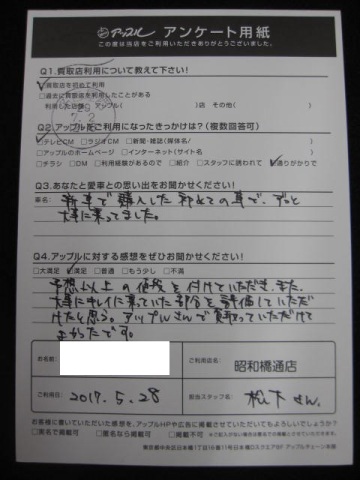 アップル アンケート用紙
この度は当店をご利用いただきありがとうございました。
Q1.買取店利用について教えて下さい!
☑買取店を初めて利用
□過去に買取店を利用したことがある
利用した店舗 アップル( )店 その他( )
7.2
Q2.アップルをご利用になったきっかけは?(複数回答可)
☑テレビCM □ラジオCM □新聞・雑誌(媒体名 )
□アップルのホームページ □インターネット(サイト名 )
□チラシ □DM □利用経験があるので □紹介 □スタッフに誘われて ☑通りがかりで
Q3.あなたと愛車との思い出をお聞かせください!
車名: 新車で購入した初めての車で、ずっと
大事に乗ってました。
Q4.アップルに対する感想をぜひお聞かせください!
□大満足 ☑満足 □普通 □もう少し □不満
予想以上の値段を付けていただき、また、
大事にキレイに乗っていた部分を評価していただ
けたと思う。アップルさんで買取っていただけて
よかったです。
お名前
ご利用店名: 昭和橋通店
ご利用日: 2017.5.28
担当スタッフ名: 松下さん
お客様に書いていただいた感想を、アップルHPや広告に掲載させていただいてもよろしいでしょうか?
□匿名で掲載可 □匿名なら掲載可 □掲載不可